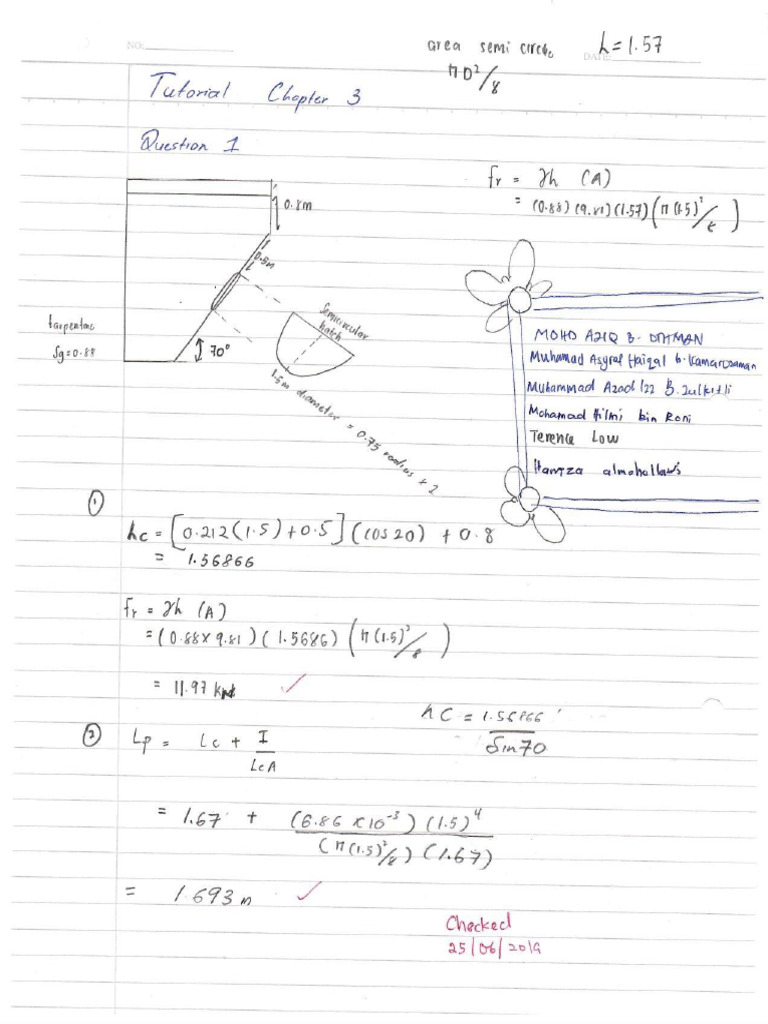 NO:
area semi circle h=1.57
DATE:
πD²/8
Tutorial Chapter 3
Question 1
fr = γh (A)
= (0.88)(9.81)(1.57)(π(1.5)²/8)
0.8m
0.5m
Semicircular
hatch
tarpentine
Sg=0.88
70°
1.5m diameter = 0.75 radius × 2
MOHD AZIQ B. OTHMAN
Muhamad Asyraf Haiqal b. Kamaruzaman
Muhammad Azad Izz B. Zulkifli
Mohamad Hilmi bin Roni
Terence Low
Hamza
①
hc = [0.212(1.5)+0.5](cos20) + 0.8
= 1.56866
Fr = γh (A)
= (0.88×9.81)(1.5686)(π(1.5)²/8)
= 11.97
hc = 1.56866
Sin70
② Lp = Lc + I
LcA
= 1.67 + (6.86 ×10⁻³)(1.5)⁴
(π(1.5)²/8)(1.67)
= 1.693 m
Checked
25/06/2019